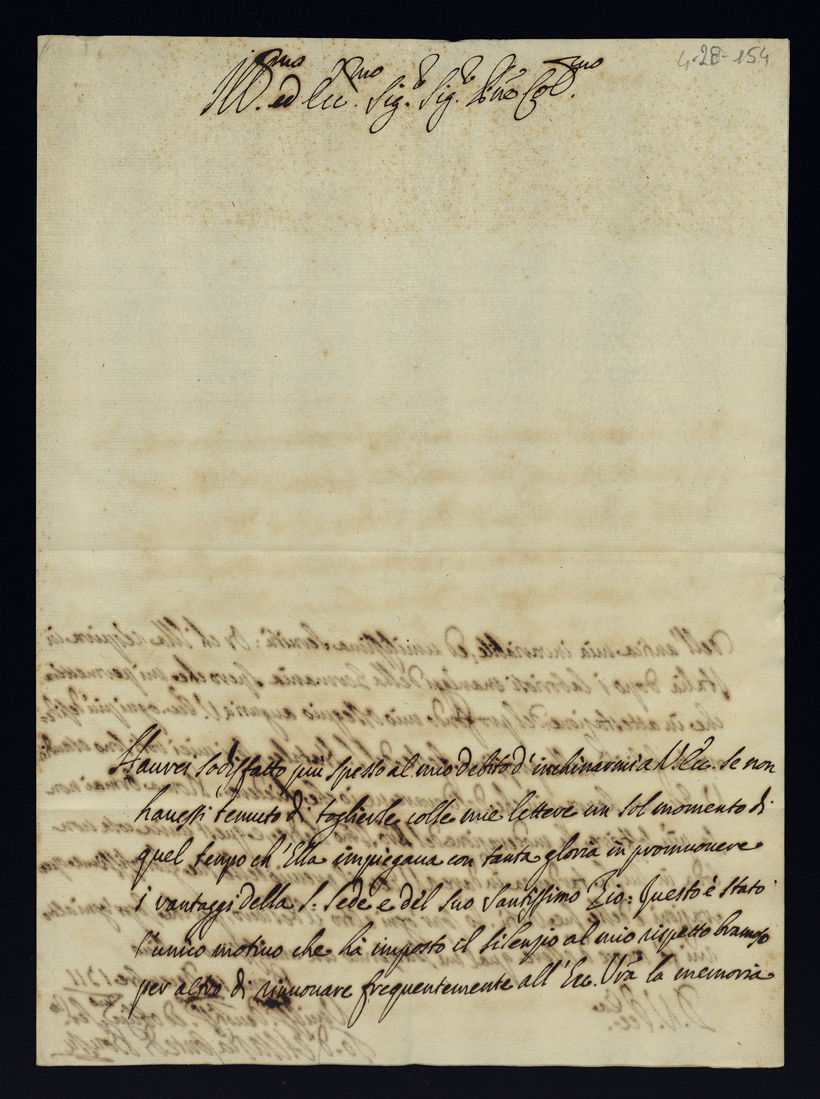 4-28-154
Ill.mo ed Ecc.mo Sig.r Sig.r P'rone Col.mo
Haurei sodisfatto più spesso al mio debito d'inchinarmi a V. Ecc. se non
hauessi temuto di toglierle colle mie lettere un sol momento di
quel tempo ch'Ella impiegaua con tanta gloria in promuouere
i vantaggi della S: Sede e del suo Santissimo Zio: Questo è stato
l'unico motiuo che hà imposto il silenzio al mio rispetto bramoso
per altro di rinnouare frequentemente all'Ecc. Vrã la memoria